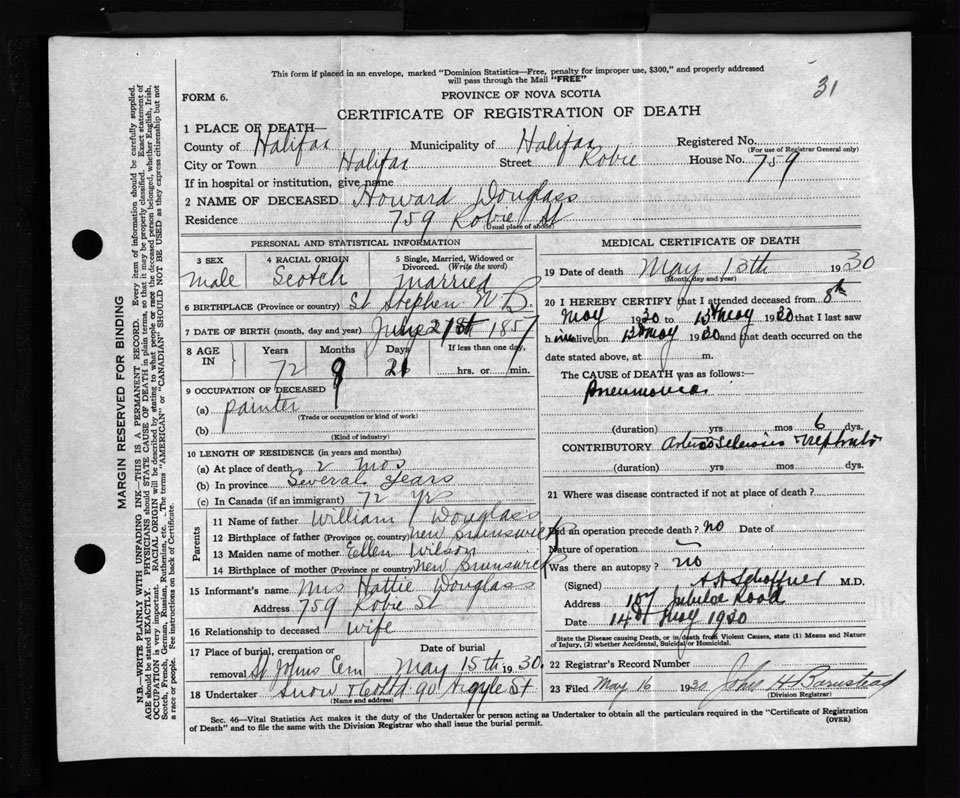 This form if placed in an envelope, marked "Dominion Statistics—Free, penalty for improper use, $300," and properly addressed
will pass through the Mail "FREE"
31
FORM 6.
PROVINCE OF NOVA SCOTIA
CERTIFICATE OF REGISTRATION OF DEATH
1 PLACE OF DEATH—
County of Halifax Municipality of Halifax Registered No.
(For use of Registrar General only)
City or Town Halifax Street Robie House No. 759
If in hospital or institution, give name
2 NAME OF DECEASED Howard Douglass
Residence 759 Robie St
(Usual place of abode)
PERSONAL AND STATISTICAL INFORMATION
3 SEX male
4 RACIAL ORIGIN Scotch
5 Single, Married, Widowed or Divorced. (Write the word) Married
6 BIRTHPLACE (Province or country) St. Stephen N B.
7 DATE OF BIRTH (month, day and year) 1857
8 AGE IN Years Months Days If less than one day,
72 9 21 hrs. or min.
9 OCCUPATION OF DECEASED
(a) painter
(Trade or occupation or kind of work)
(b)
(Kind of industry)
10 LENGTH OF RESIDENCE (in years and months)
(a) At place of death 2 mos
(b) In province Several years
(c) In Canada (if an immigrant) 72 yrs
Parents
11 Name of father William Douglass
12 Birthplace of father (Province or country) New Brunswick
13 Maiden name of mother Ellen Wilson
14 Birthplace of mother (Province or country) New Brunswick
15 Informant's name Mrs Hattie Douglass
Address 759 Robie St
16 Relationship to deceased wife
17 Place of burial, cremation or removal St Johns Cem Date of burial May 15th 1930
18 Undertaker Snow & Co Ltd 90 Argyle St
(Name and address)
MEDICAL CERTIFICATE OF DEATH
19 Date of death May 13th 1930
(Month, day and year)
20 I HEREBY CERTIFY that I attended deceased from 8th
May 1930 to 13th May 1930 that I last saw
him alive on May 1930 and that death occurred on the
date stated above, at m.
The CAUSE of DEATH was as follows:—
Pneumonia
(duration) yrs mos 6 dys.
CONTRIBUTORY Arterio Sclerosis Nephritis
(duration) yrs. mos dys.
21 Where was disease contracted if not at place of death?
Did an operation precede death? no Date of
Nature of operation
Was there an autopsy? no
(Signed) M.D.
Address 107 Jubilee Road
Date 14th May 1930
State the Disease causing Death, or in death from Violent Causes, state (1) Means and Nature
of Injury, (2) whether Accidental, Suicidal or Homicidal.
22 Registrar's Record Number
23 Filed May 16 1930 John H Barnstead
(Division Registrar)
Sec. 46—Vital Statistics Act makes it the duty of the Undertaker or person acting as Undertaker to obtain all the particulars required in the "Certificate of Registration
of Death" and to file the same with the Division Registrar who shall issue the burial permit.
(OVER)
MARGIN RESERVED FOR BINDING
N.B.—WRITE PLAINLY WITH UNFADING INK—THIS IS A PERMANENT RECORD. Every item of information should be carefully supplied.
AGE should be stated EXACTLY. PHYSICIANS should STATE CAUSE OF DEATH in plain terms, so that it may be properly classified. Exact statement of
OCCUPATION is very important. RACIAL ORIGIN will be described by stating to what people or race the deceased person belonged, whether English, Irish,
Scotch, French, German, Russian, Ruthenian, etc. The terms "AMERICAN" or "CANADIAN" SHOULD NOT BE USED as they express citizenship but not
a race or people. See instructions on back of Certificate.